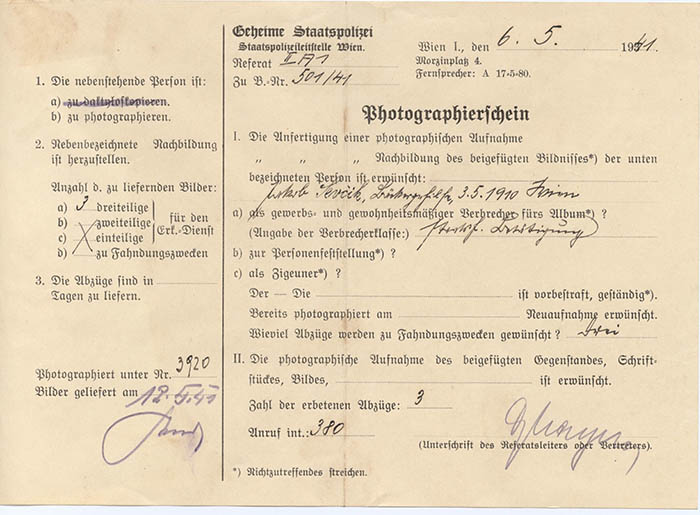 1. Die nebenstehende Person ist:
a) zu daktyloskopieren.
b) zu photographieren.
2. Nebenbezeichnete Nachbildung
ist herzustellen.
Anzahl d. zu liefernden Bilder:
a) 3 dreiteilige
b) zweiteilige
c) einteilige
für den
Erk.-Dienst
d) zu Fahndungszwecken
3. Die Abzüge sind in
Tagen zu liefern.
Photographiert unter Nr. 3920
Bilder geliefert am 12.5.41
Geheime Staatspolizei
Staatspolizeileitstelle Wien.
Referat II A1
Zu B.-Nr. 501/41
Wien I., den 6. 5. 1941.
Morzinplatz 4.
Fernsprecher: A 17-5-80.
Photographierschein
I. Die Anfertigung einer photographischen Aufnahme
„ „ „ Nachbildung des beigefügten Bildnisses*) der unten
bezeichneten Person ist erwünscht:
Jakob 3.5.1910 Wien
a) als gewerbs- und gewohnheitsmäßiger Verbrecher fürs Album*) ?
(Angabe der Verbrecherklasse:) Betätigung
b) zur Personenfeststellung*) ?
c) als Zigeuner*) ?
Der — Die ist vorbestraft, geständig*).
Bereits photographiert am Neuaufnahme erwünscht.
Wieviel Abzüge werden zu Fahndungszwecken gewünscht ? drei
II. Die photographische Aufnahme des beigefügten Gegenstandes, Schrift-
stückes, Bildes, ist erwünscht.
Zahl der erbetenen Abzüge: 3
Anruf int.: 380
(Unterschrift des Referatsleiters oder Vertreters).
*) Nichtzutreffendes streichen.